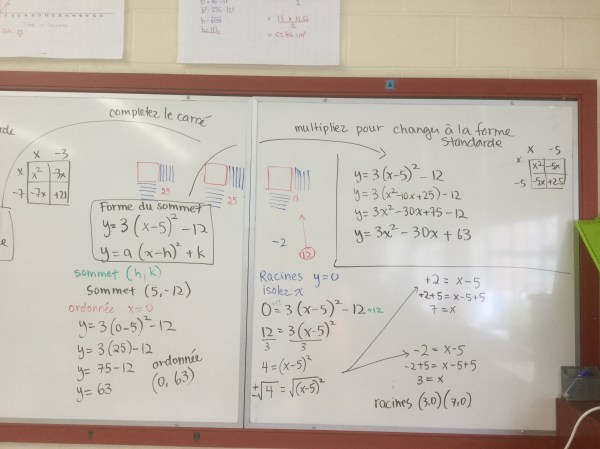 completez le carré
x -3
x x² -3x
-7 -7x +21
25
25
Forme du sommet
y = 3(x-5)² - 12
y = a(x-h)² + k
sommet (h,k)
sommet (5,-12)
ordonnée x=0
y = 3(0-5)² - 12
y = 3(25) - 12
y = 75 - 12
y = 63
ordonnée
(0, 63)
multipliez pour changer à la forme
standarde
-2
12
y = 3(x-5)² - 12
y = 3(x²-10x+25) - 12
y = 3x² - 30x + 75 - 12
y = 3x² - 30x + 63
x -5
x x² -5x
-5 -5x +25
Racines y=0
isolez x
0 = 3(x-5)² - 12 +12
12 = 3(x-5)²
3 3
4 = (x-5)²
±√4 = √(x-5)²
+2 = x-5
+2+5 = x-5+5
7 = x
-2 = x-5
-2+5 = x-5+5
3 = x
racines (3,0) (7,0)